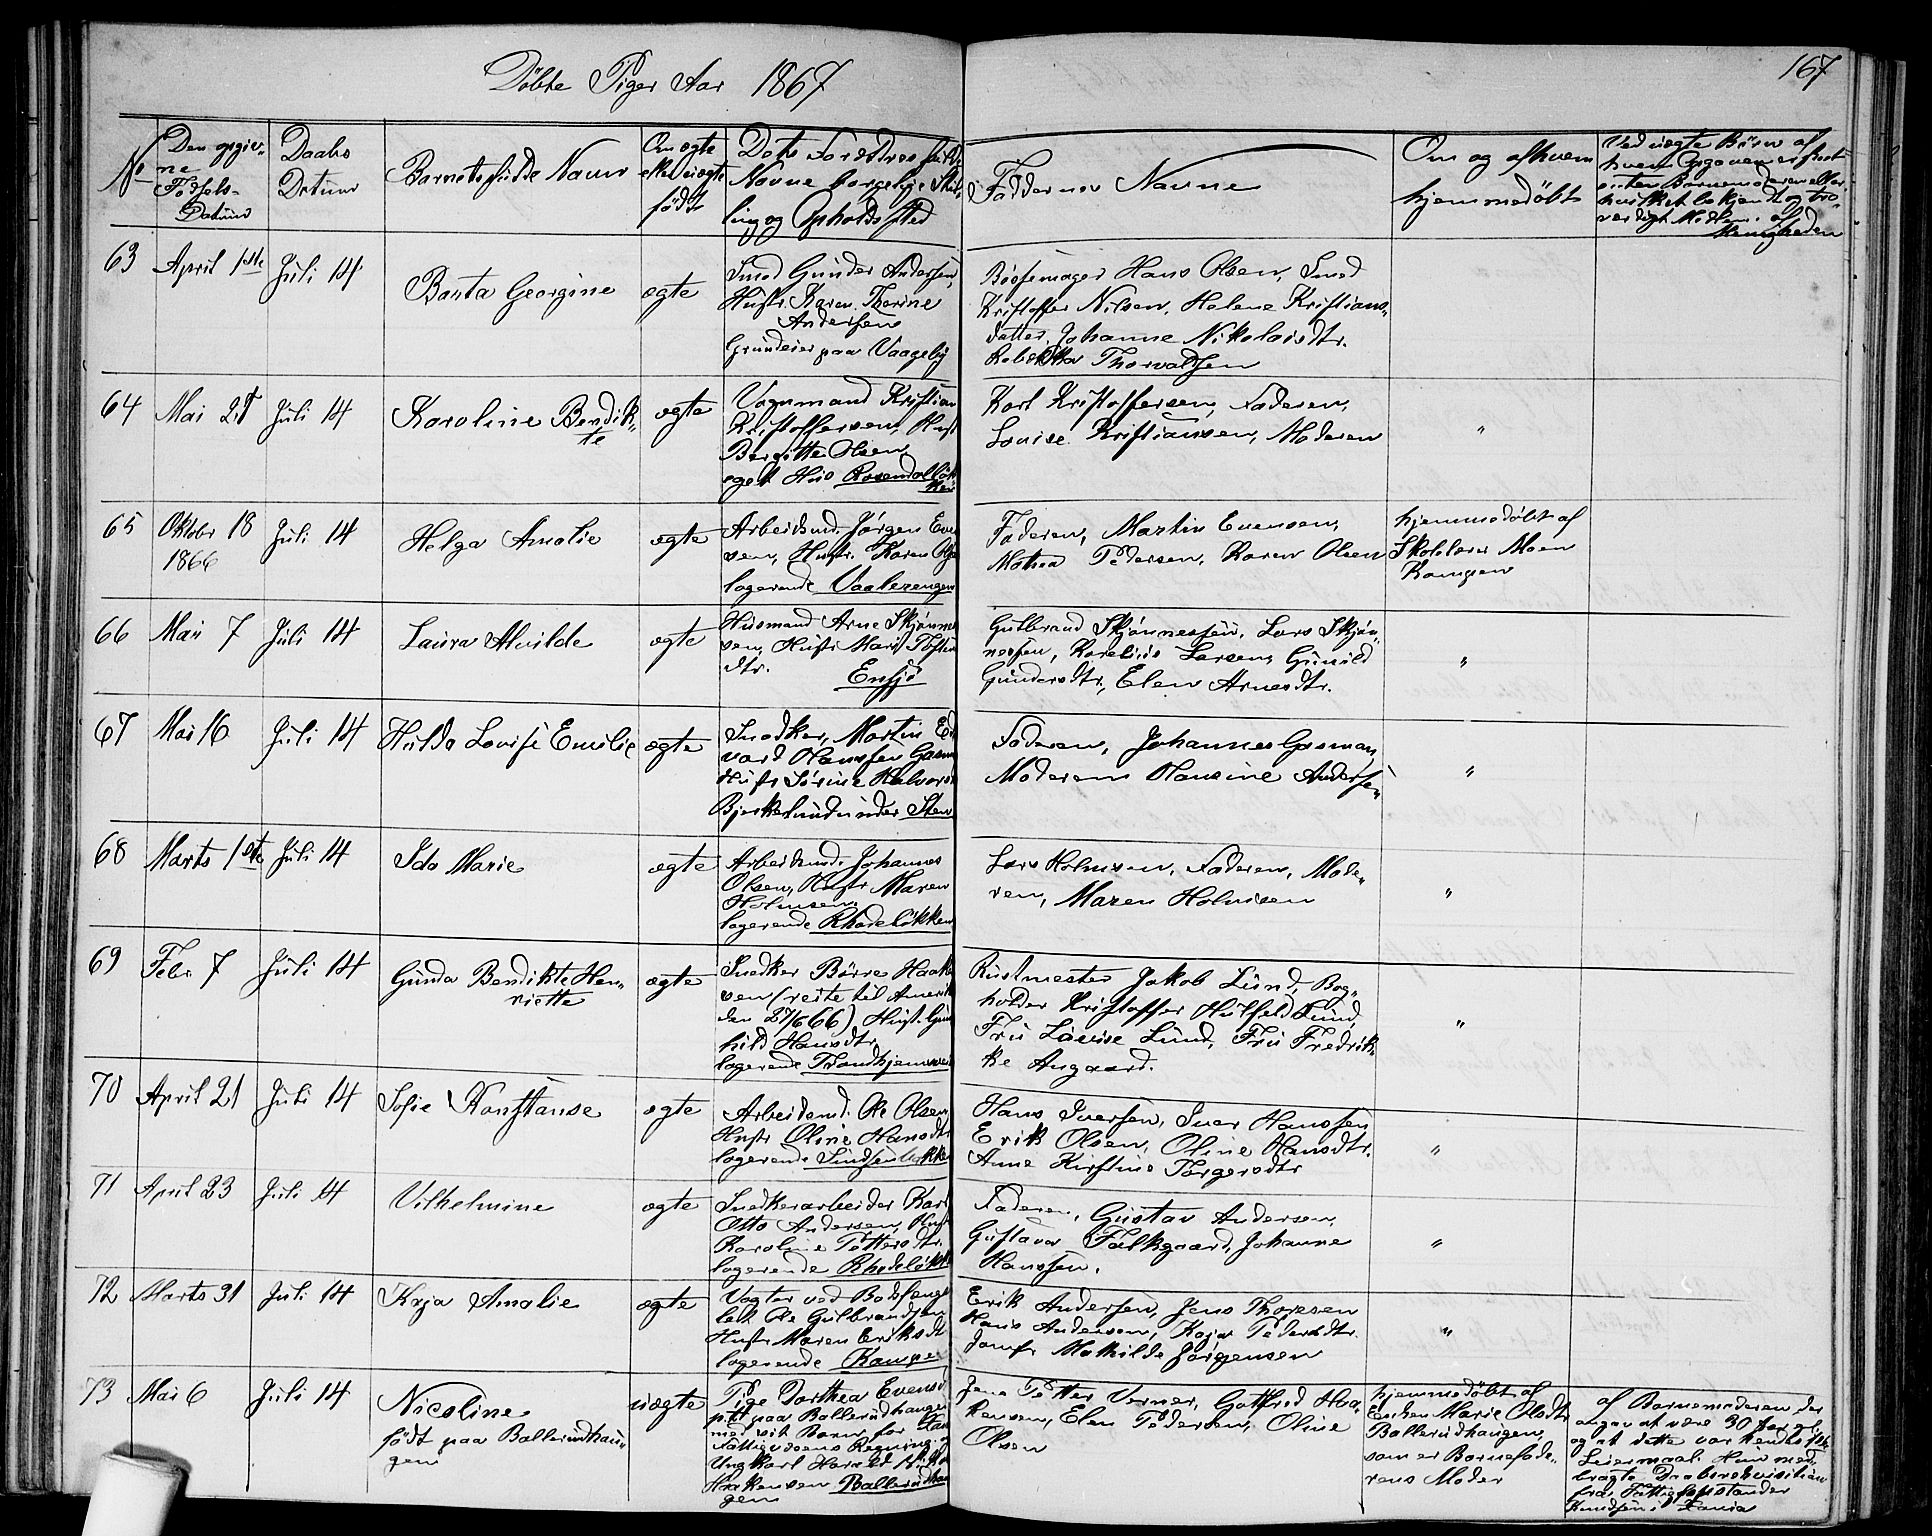 Döbte Piger Aar 1867
167
No
Den opgiv-
ne
Födsels-
Datum
Daabs
Datum
Barnets fulde Navn
Om ægte
eller uægte
födt
Dets Forældres fulde
Navne borgelige Stil-
ling og Opholdssted
Faddernes Navne
Om og af hvem
hjemmedöbt
Ved uægte Börn af
hvem Opgaven er skeet
enten Barnemoderen eller
hvilket bekjendt og tro-
værdigt Medlem af
Menigheden
63 April 1ste Juli 14 Barta Georgine ægte
Smed Gunder Andersen,
Hustr. Karen Thorine
Andersen
Grundeier paa Vaageby
Bössemager Hans Olsen, Smed
Kristoffer Nilsen, Helene Kristians-
datter, Johanne Nikolaisdtr.
Rebekka Thorvaldsen
64 Mai 21 Juli 14 Karoline Bendik-
te
ægte
Vognmand Kristian
Kristoffersen, Hust
Bergitte Olsen
eget Hus Rosendallök
ken
Karl Kristoffersen, Faderen,
Lovise Kristiansen, Moderen
"
65 Oktober 18
1866
Juli 14 Helga Amalie ægte
Arbeidsmd. Jörgen Even
sen, Hustr. Karen Ols
logerende Vaalerengen
Faderen, Martin Evensen,
Mathea Pedersen, Karen Olsen
hjemmedöbt af
Skolelærer Moen
Kampen
66 Mai 7 Juli 14 Laura Alvilde ægte
Husmand Arne Skjönnes
sen, Hustr Mari Tosten
dtr.
Ensjö
Gulbrand Skjönnessen, Lars Skjön-
nessen, Karelius Larsen, Gunild
Gundersdtr., Elen Arnesdtr.
"
67 Mai 16 Juli 14 Hulda Lovise Emilie ægte
Snedker, Martin Ed
vard Hanssen Gasm
Hustr Sörine Halvors
Bjerkelund under Sten
Faderen, Johannes Gasman
Moderen Hansine Anderse-
"
68 Marts 1ste Juli 14 Ida Marie ægte
Arbeidsmd. Johannes
Olsen, Hustr Maren
Holmsen
logerende Rhodelökken
Lars Holmsen, Faderen, Mode-
ren, Maren Holmsen
"
69 Febr 7 Juli 14 Gunda Bendikte Hen-
riette
ægte
Snedker Börre Haak
sen (reiste til Amerik
den 27/6 66) Hust. Gun
hild Hansdtr.
logerende Trondhjemsvei
Rustmester Jakob Lund, Bog-
holder Kristoffer Hulfeld Lund,
Fru Lovise Lund, Fru Fredrik-
ke Aagaard.
"
70 April 21 Juli 14 Sofie Konstanse ægte
Arbeidsmd. Ole Olsen
Hustr Oline Hansdtr
logerende
Hans Iversen, Iver Hanssen
Erik Olsen, Oline Hansdtr.
Anne Kirstine Torgersdtr
"
71 April 23 Juli 14 Vilhelmine ægte
Snedkerarbeider Karl
Otto Andersen, Hust
Karoline Pettersdtr.
logerende Rhodelökk
Faderen, Gustav Andersen,
Gustava Falkgaard, Johanne
Hanssen.
"
72 Marts 31 Juli 14 Kaja Amalie ægte
Vogter ved Bodsfæng
let Ole Gulbrandsen
Hustr Maren Eriksdt
logerende Kampe
Erik Andersen, Jens Thoresen
Hans Andersen, Kaja Pedersdtr.
Jomfr Mathilde Jörgensen
"
73 Mai 6 Juli 14 Nicoline
födt paa Ballerudhau-
gen
uægte
Pige Dorthea Evensd
paa Ballerudhaugen
med sit Barn for
Fattigvæsens Regning
Ungkarl Harald
Haakensen Ballerudhau
gen
Jens Petter Verner, Gotfred Haa
kensen, Elen Pedersen, Oline
Olsen
hjemmedöbt af
Marie Olsdtr
Ballerudhaugen,
som er Barnefade-
rens Moder
af Barnemoderen der
angav at være 30 Aar gl.
og at dette var hendes 1ste
Leiermaal. Hun med-
bragte Daabsrekvisition
fra Fattigforstander
Knudsen i